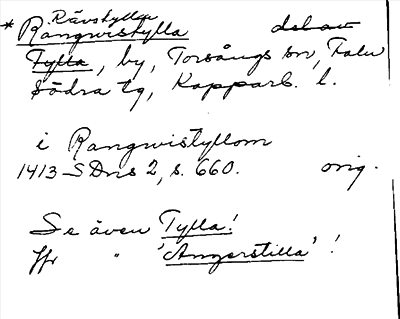 Rävstylla
* Rangwistylla del av
Tylla, by, Torsångs sn, Falu
Södra tg, Kopparb. l.
i Rangwistyllom
1413 SDns 2, s. 660. orig.
Se även Tylla!
Jfr " 'Angerstilla'!